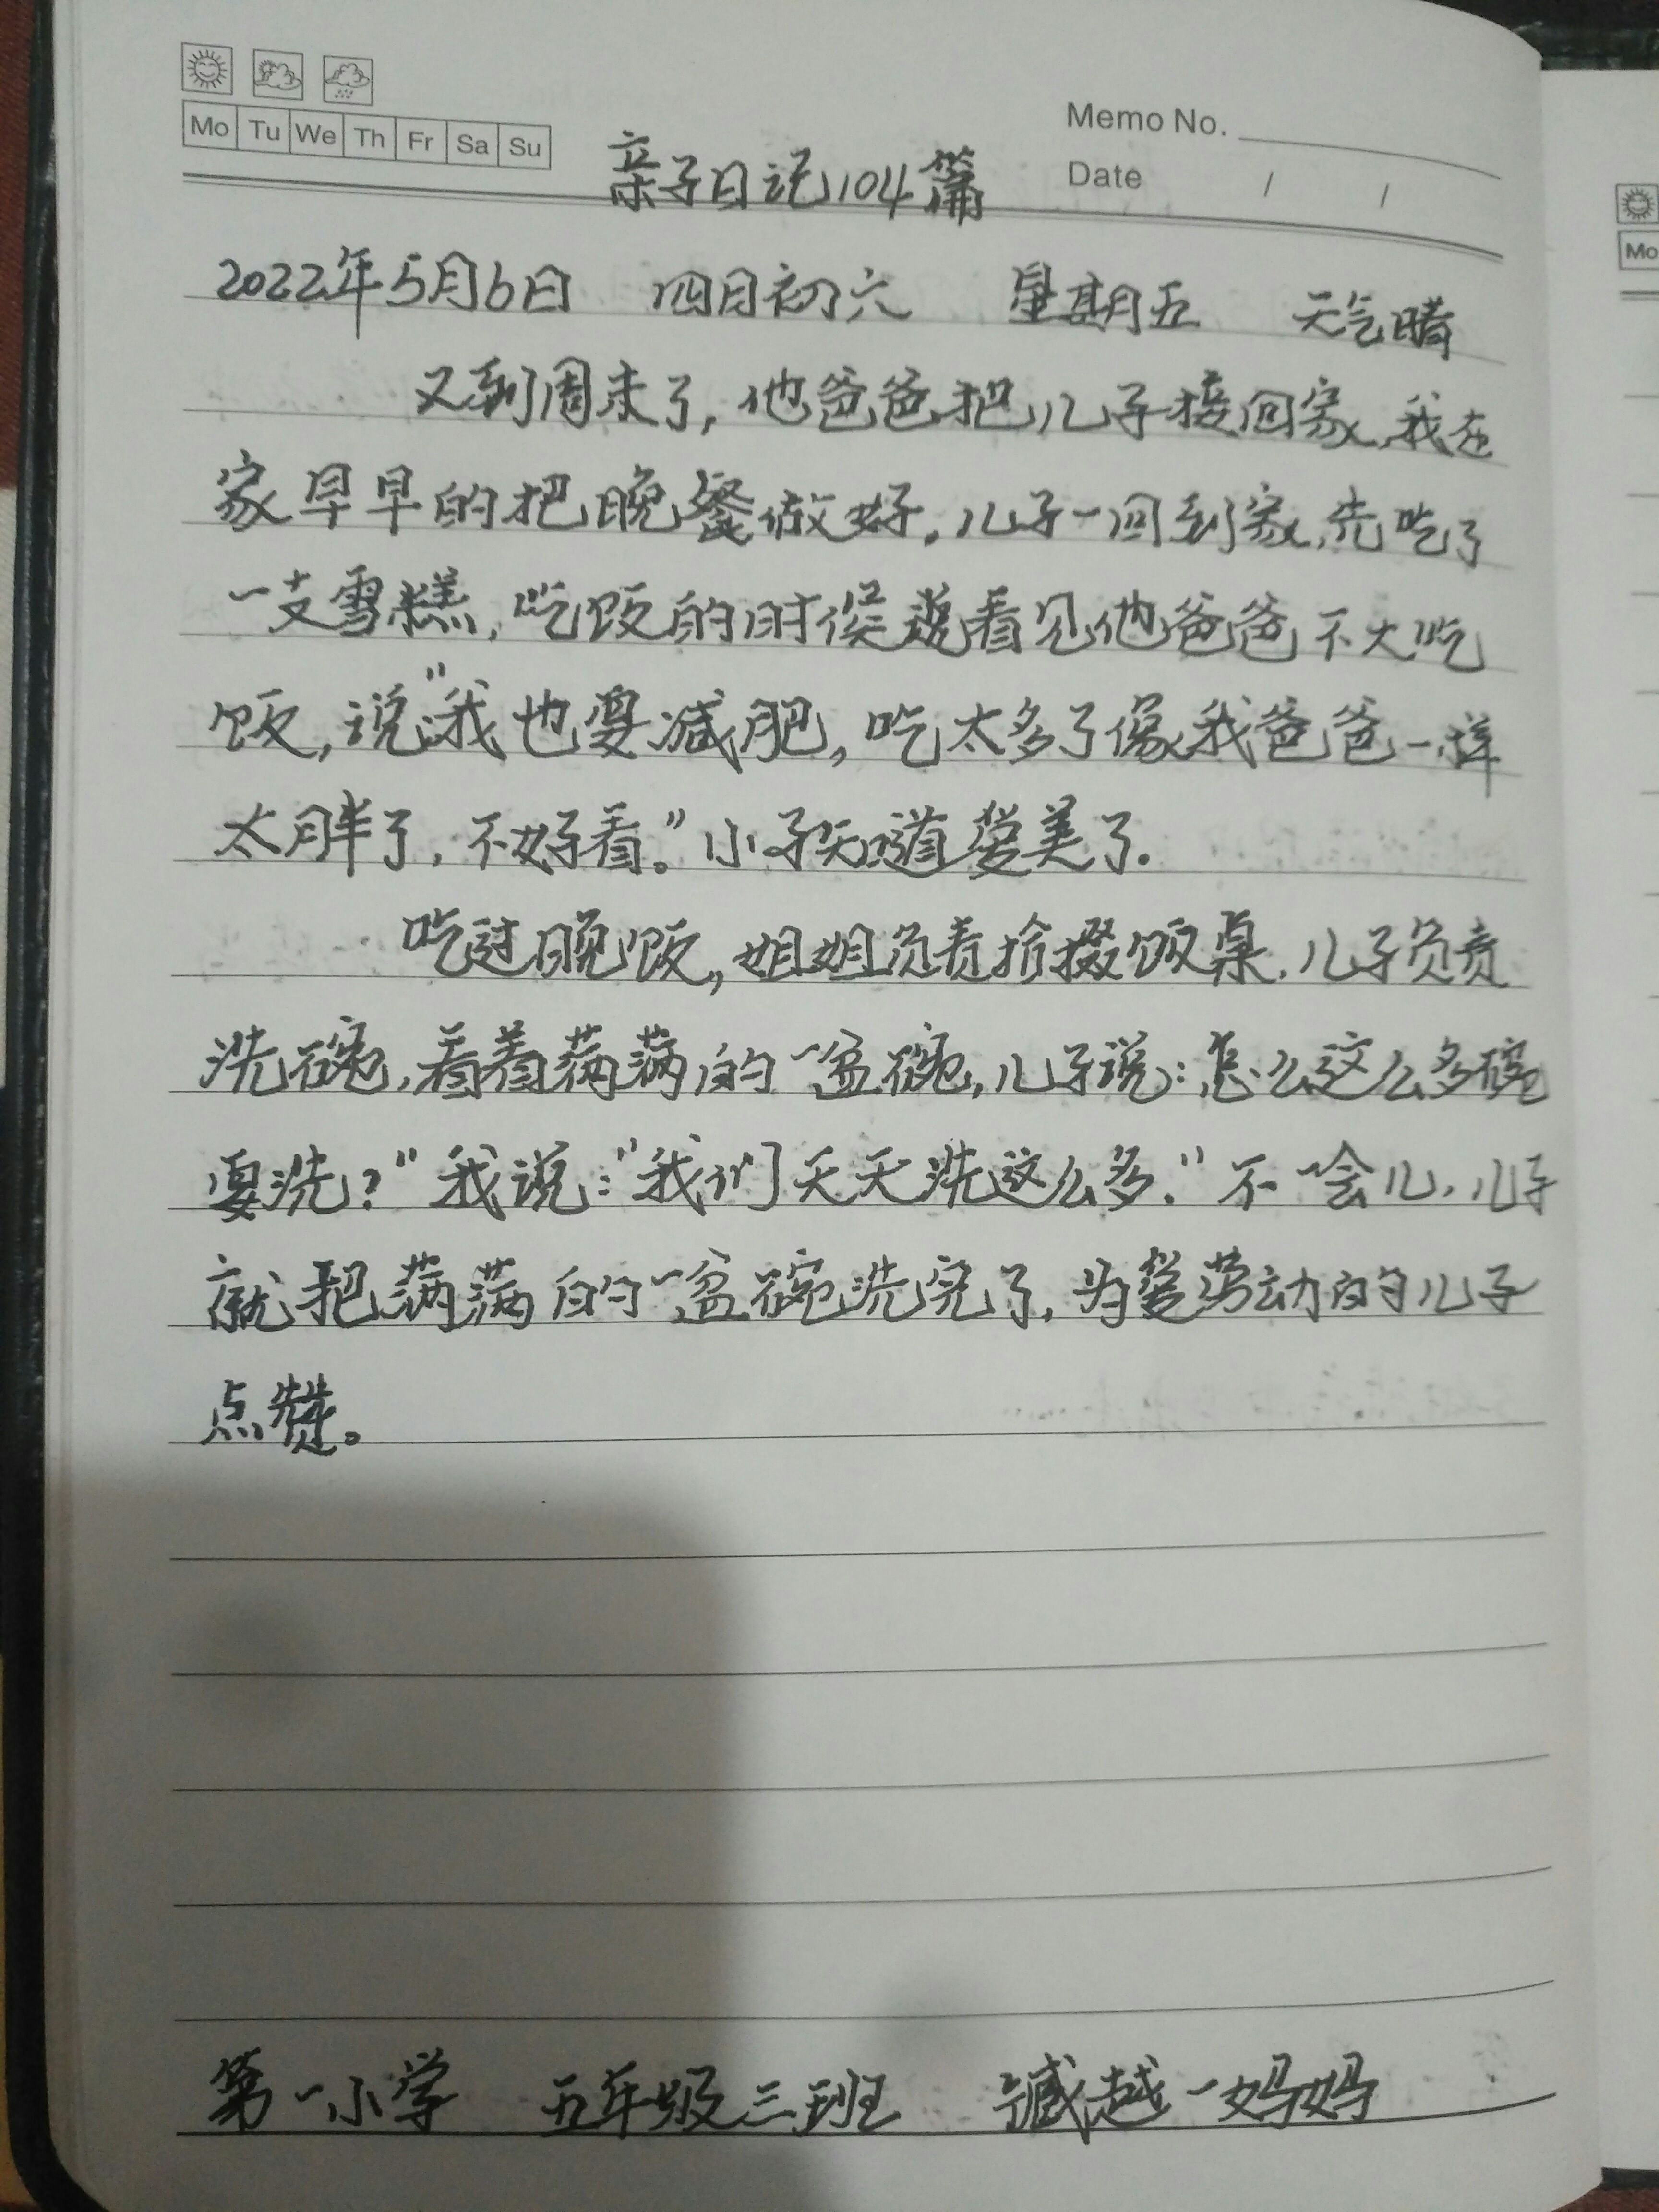 Mo Tu We Th Fr Sa Su
Memo No.
Date / /
亲子日记104篇
2022年5月6日 四月初六 星期五 天气晴
又到周末了,他爸爸把儿子接回家,我在
家早早的把晚餐做好。儿子一回到家,先吃了
一支雪糕,吃饭的时候看见他爸爸不大吃
饭,说:"我也要减肥,吃太多了像我爸爸一样
太胖了,不好看。"小子知道爱美了.
吃过晚饭,姐姐负责拾掇饭桌,儿子负责
洗碗,看着满满的一盆碗,儿子说:怎么这么多碗
要洗?"我说:"我们天天洗这么多."不一会儿,儿子
就把满满的一盆碗洗完了,为爱劳动的儿子
点赞。
第一小学 五年级三班 臧越一妈妈
Mo